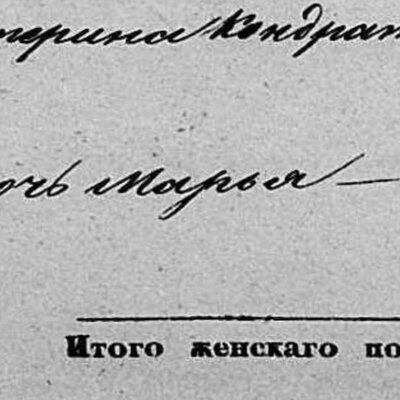 терина Кондрат
очь Марья —
Итого женскаго по